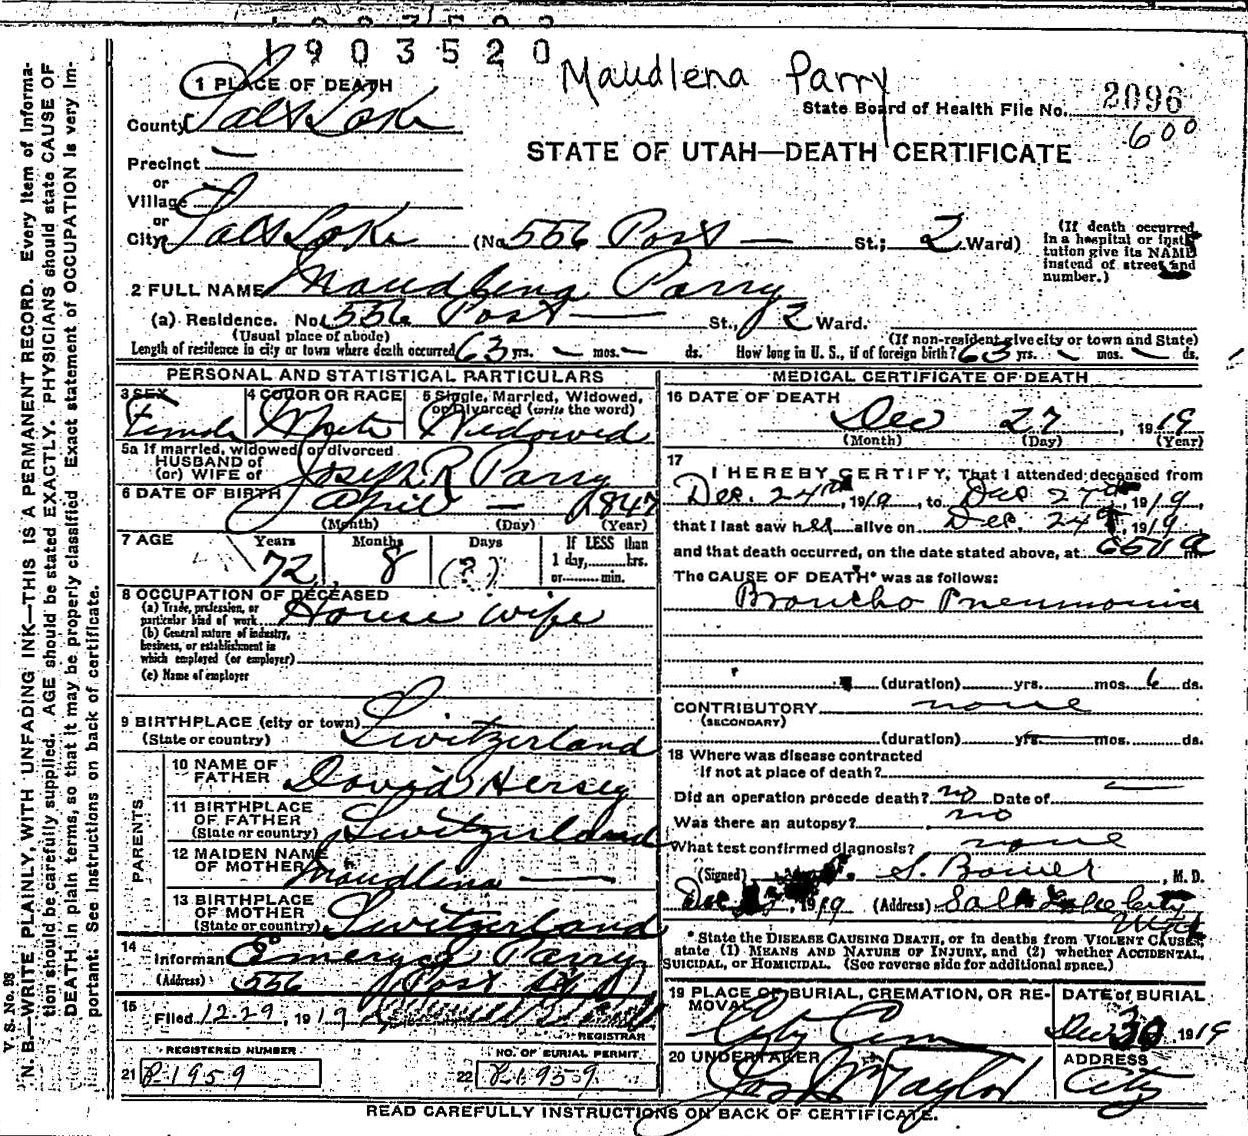 1903520
Maudlena Parry
State Board of Health File No. 2096
600
1 PLACE OF DEATH
County Salt Lake
STATE OF UTAH—DEATH CERTIFICATE
Precinct
or
Village
or
City Salt Lake (No. 556 Post St.; 2 Ward)
(If death occurred in a hospital or institution give its NAME instead of street and number.)
2 FULL NAME Maudlena Parry
(a) Residence. No. 556 Post St., 2 Ward.
(Usual place of abode) (If non-resident give city or town and State)
Length of residence in city or town where death occurred 63 yrs. — mos. — ds. How long in U. S., if of foreign birth? 63 yrs. — mos. — ds.
PERSONAL AND STATISTICAL PARTICULARS
3 SEX Female
4 COLOR OR RACE White
5 Single, Married, Widowed, or Divorced (write the word) Widowed
5a If married, widowed, or divorced
HUSBAND of
(or) WIFE of Joseph R Parry
6 DATE OF BIRTH April — 1847
(Month) (Day) (Year)
7 AGE Years 72 Months 8 Days (?)
If LESS than 1 day, hrs. or min.
8 OCCUPATION OF DECEASED
(a) Trade, profession, or particular kind of work House wife
(b) General nature of industry, business, or establishment in which employed (or employer)
(c) Name of employer
9 BIRTHPLACE (city or town)
(State or country) Switzerland
PARENTS
10 NAME OF FATHER David Hersey
11 BIRTHPLACE OF FATHER (State or country) Switzerland
12 MAIDEN NAME OF MOTHER Maudlena —
13 BIRTHPLACE OF MOTHER (State or country) Switzerland
14 Informant Parry
(Address) 556 Post
15 Filed 12-29, 1919
REGISTRAR
REGISTERED NUMBER
21 P-1959
NO. OF BURIAL PERMIT
22 P-1959
MEDICAL CERTIFICATE OF DEATH
16 DATE OF DEATH
Dec 27, 1919
(Month) (Day) (Year)
17 I HEREBY CERTIFY, That I attended deceased from
Dec. 24th, 1919, to Dec 27th, 1919
that I last saw her alive on Dec. 24, 1919,
and that death occurred, on the date stated above, at
The CAUSE OF DEATH* was as follows:
Broncho Pneumonia
(duration) yrs. mos. 6 ds.
CONTRIBUTORY none
(SECONDARY)
(duration) yrs. mos. ds.
18 Where was disease contracted
If not at place of death?
Did an operation precede death? no Date of —
Was there an autopsy? no
What test confirmed diagnosis? none
(Signed) S. Bower, M. D.
Dec, 1919 (Address) Salt Lake City Utah
* State the DISEASE CAUSING DEATH, or in deaths from VIOLENT CAUSES, state (1) MEANS AND NATURE OF INJURY, and (2) whether ACCIDENTAL, SUICIDAL, OR HOMICIDAL. (See reverse side for additional space.)
19 PLACE OF BURIAL, CREMATION, OR REMOVAL City Cem
DATE of BURIAL Dec 30 1919
20 UNDERTAKER Jos Wm Taylor
ADDRESS City
READ CAREFULLY INSTRUCTIONS ON BACK OF CERTIFICATE.
V. S. No. 93
N. B—WRITE PLAINLY, WITH UNFADING INK—THIS IS A PERMANENT RECORD. Every item of information should be carefully supplied. AGE should be stated EXACTLY. PHYSICIANS should state CAUSE OF DEATH in plain terms, so that it may be properly classified Exact statement of OCCUPATION is very important. See instructions on back of certificate.